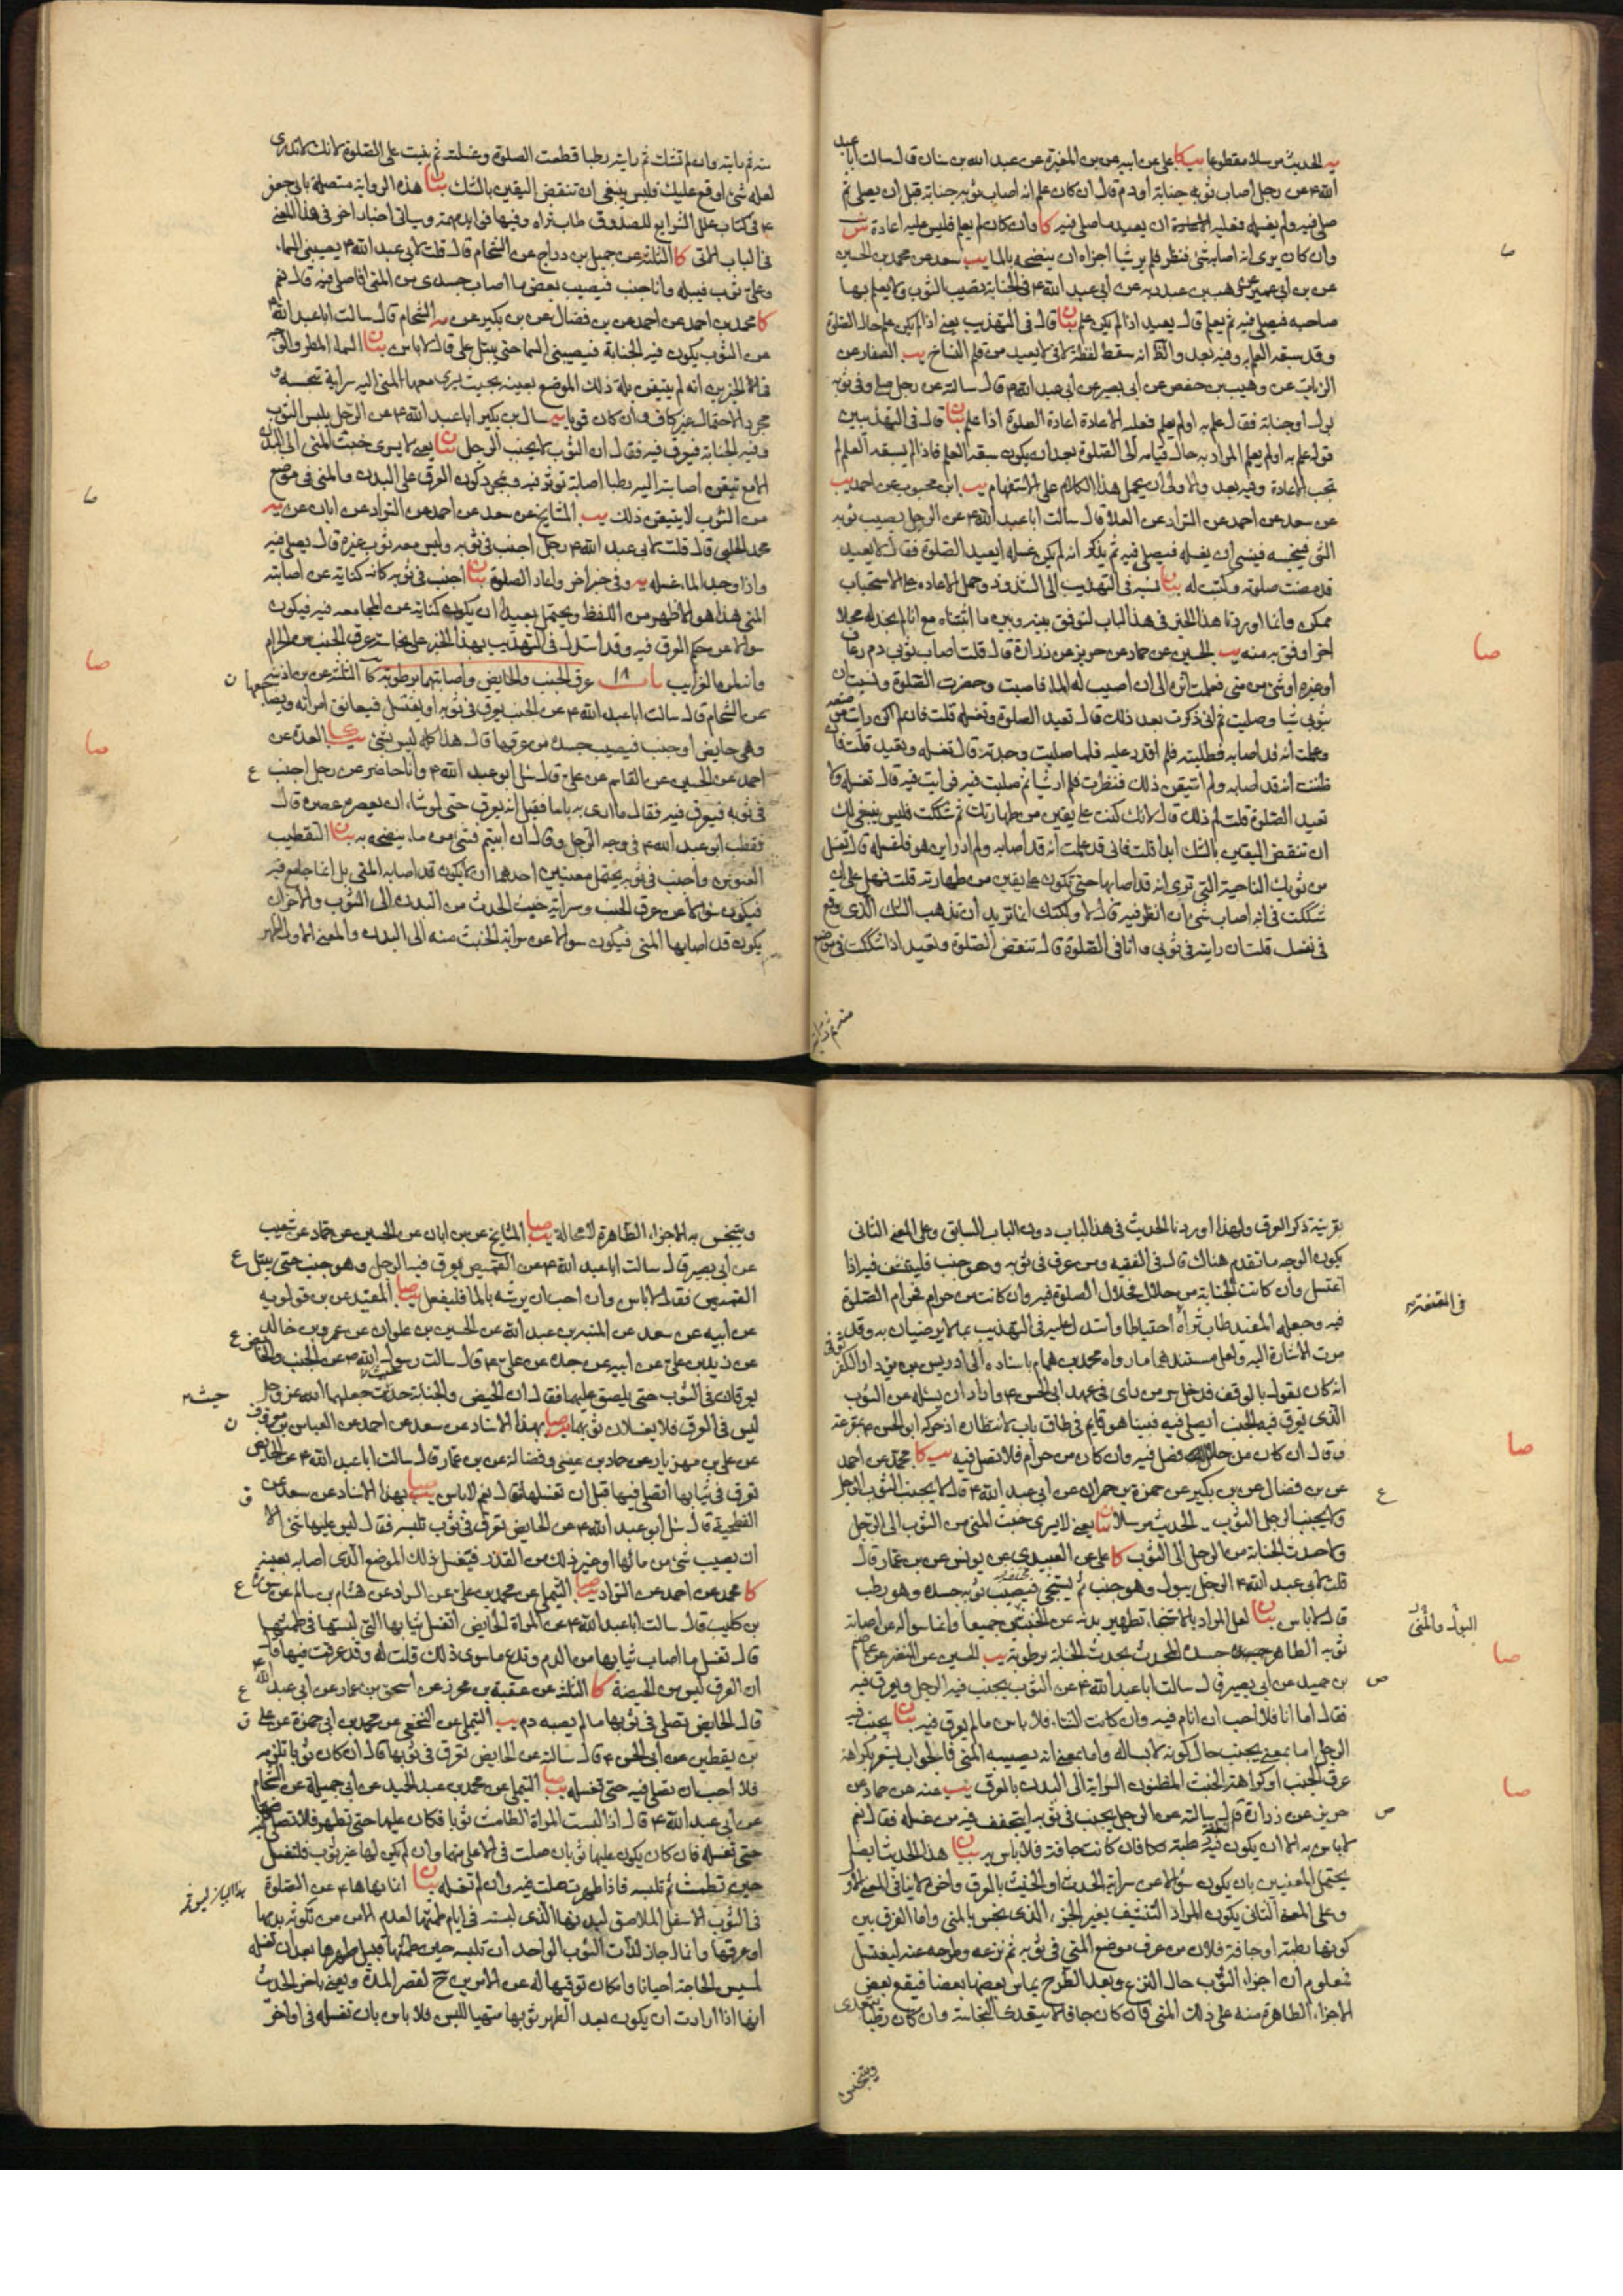 يه الحديث مرسلا مقطوعا يب كا علي عن أبيه عن بن المغيرة عن عبد الله بن سنان قال سألت أبا عبد
الله ع عن رجل أصاب ثوبه جنابة أو دم قال ان كان علم انه أصاب ثوبه جنابة قبل ان يصلي ثم
صلى فيه ولم يغسله فعليه ان يعيد ما صلى فيه كا وان كان لم يعلم فليس عليه اعادة ش
وان كان يرى انه أصابه شئ فنظر فلم ير شيئا اجزأه ان ينضحه بالماء يب سعد عن محمد بن الحسين
عن بن أبي عمير عن وهب بن عبد ربه عن أبي عبد الله ع في الجنابة تصيب الثوب ولا يعلم بها
صاحبه فيصلي فيه ثم يعلم قال يعيد اذا لم يكن علم بيان قال في التهذيب يعني اذا لم يكن علم حال الصلوة
وقد سبقه العلم به وفيه بعد والظ انه سقط لفظة لا في لا يعيد من قلم النساخ يب الصفار عن
الزيات عن وهيب بن حفص عن أبي بصير عن أبي عبد الله ع قال سألته عن رجل صلى وفي ثوبه
بول أو جنابة فقال علم به أو لم يعلم فعليه الاعادة اعادة الصلوة اذا علم بيان قال في التهذيبين
قوله علم به أو لم يعلم المراد به حال قيامه الى الصلوة بعد ان يكون سبقه العلم فاذا لم يسبقه العلم لم
تجب الاعادة وفيه بعد والاولى أن يحمل هذا الكلام على الاستفهام يب ابن محبوب عن احمد يب
عن سعد عن احمد عن السراد عن العلا قال سألت أبا عبد الله ع عن الرجل يصيب ثوبه
الشئ فينجسه فينسى ان يغسله فيصلي فيه ثم يذكر انه لم يكن غسله ايعيد الصلوة فقال لا يعيد
قد مضت صلوته وكتبت له بيان نسبه في التهذيب الى الشذوذ وحمل الاعادة على الاستحباب
ممكن وانما اوردنا هذا الخبر في هذا الباب لنوفق بينه وبين ما اثبتناه مع انا لم نجد له محلا
اخر أوفق به منه يب الحسين عن حماد عن حريز عن زرارة قال قلت أصاب ثوبي دم رعاف
أو غيره أو شئ من مني فعلمت أثره الى ان أصيب له الماء فاصبت وحضرت الصلوة ونسيت ان
بثوبي شيئا وصليت ثم اني ذكرت بعد ذلك قال تعيد الصلوة وتغسله قلت فان لم اكن رأيت موضعه
وعلمت انه قد أصابه فطلبته فلم اقدر عليه فلما صليت وجدته قال تغسله وتعيد قلت فان
ظننت انه قد أصابه ولم اتيقن ذلك فنظرت فلم ار شيئا ثم صليت فيه فرأيت فيه قال تغسله ولا
تعيد الصلوة قلت لم ذلك قال لانك كنت على يقين من طهارتك ثم شككت فليس ينبغي لك
ان تنقض اليقين بالشك ابدا قلت فاني قد علمت انه قد أصابه ولم ادر اين هو فاغسله قال تغسل
من ثوبك الناحية التي ترى انه قد أصابها حتى تكون على يقين من طهارته قلت فهل علي ان
شككت في انه أصاب شئ ان انظر فيه قال لا ولكنك انما تريد ان تذهب الشك الذي وقع
في نفسك قلت ان رأيته في ثوبي وانا في الصلوة قال تنقض الصلوة وتعيد اذا شككت في موضع
منه ثم رأيته
منه ثم رأيته وان لم تشك ثم رأيته رطبا قطعت الصلوة وغسلته ثم بنيت على الصلوة لانك لا تدري
لعله شئ أوقع عليك فليس ينبغي ان تنقض اليقين بالشك بيان هذه الرواية متصلة بأبي جعفر
ع في كتاب علل الشرايع للصدوق طاب ثراه وفيها فوايد مهمة ويأتي اخبار اخر في هذا المعنى
في الباب الاتي كا الثلثة عن جميل بن دراج عن الشحام قال قلت لابي عبد الله ع يصيبني السماء
وعلي ثوب فتبله وانا جنب فيصيب بعض ما أصاب جسدي من المني افأصلي فيه قال نعم
كا محمد بن احمد عن احمد عن بن فضال عن بن بكير عن يه الشحام قال سألت أبا عبد الله ع
عن الثوب يكون فيه الجنابة فيصيبني السماء حتى يبتل علي قال لا بأس بيان السماء المطر والوجه
في الخبرين انه لم يتيقن بلة ذلك الموضع بعينه بحيث يسري معها المني اليه سراية تنجسه و
مجرد الاحتمال غير كاف وان كان قويا يه سأل بن بكير أبا عبد الله ع عن الرجل يلبس الثوب
وفيه الجنابة فيعرق فيه فقال ان الثوب لا يجنب الرجل بيان يعني لا يسري خبث المني الى البدن
الا مع تيقن أصابته اليه رطبا اصابة تؤثر فيه وبمجرد كون العرق على البدن والمني في موضع
من الثوب لا يتيقن ذلك يب المشايخ عن سعد عن احمد عن السراد عن ابان عن يه
محمد الحلبي قال قلت لابي عبد الله ع رجل أجنب في ثوبه وليس معه ثوب غيره قال يصلي فيه
واذا وجد الماء غسله يه وفي خبر اخر واعاد الصلوة بيان اجنب في ثوبه كانه كناية عن أصابته
المني هذا هو الاظهر من اللفظ ويحتمل بعيدا ان يكون كناية عن المجامعة فيه فيكون
سؤالا عن حكم العرق فيه وقد استدل في التهذيب بهذا الخبر على نجاسة عرق الجنب من الحرام
وانه لمن الغرايب باب ١٨ عرق الجنب والحايض وأصابتهما برطوبة كا الثلثة عن بن اذينة
عن الشحام قال سألت أبا عبد الله ع عن الجنب يعرق في ثوبه أو يغتسل فيعانق امرأته ويضاجعها
وهي حايض أو جنب فيصيب جسده من عرقها قال هذا كله ليس بشئ يب كا العدة عن
احمد عن الحسين عن القاسم عن علي قال سئل ابو عبد الله ع وانا حاضر عن رجل اجنب
في ثوبه فيعرق فيه فقال ما ارى به بأسا فقيل انه يعرق حتى لو شاء ان يعصره عصره قال
فقطب ابو عبد الله ع في وجه الرجل وقال ان ابيتم فشئ من ماء ينضحه به بيان التقطيب
العبوس واجنب في ثوبه يحتمل معنيين احدهما ان لا يكون قد أصابه المني بل انما جامع فيه
فيكون سؤالا عن عرق الجنب وسراية خبث الحدث من البدن الى الثوب والاخر ان
يكون قد أصابها المني فيكون سؤالا عن سراية الخبث منه الى البدن والمعنى الاول اظهر
بقرينة ذكر العرق ولهذا اوردنا الحديث في هذا الباب دون الباب السابق وعلى المعنى الثاني
يكون الوجه ما تقدم هناك قال في الفقيه ومن عرق في ثوبه وهو جنب فليتنشف فيه اذا
اغتسل وان كانت الجنابة من حلال فحلال الصلوة فيه وان كانت من حرام فحرام الصلوة
فيه وجعله المفيد طاب ثراه احتياطا واستدل عليه في التهذيب بما لا يرضيان به وقد
مرت الاشارة اليه ولعل مستندهما ما رواه محمد بن همام باسناده الى ادريس بن يزداد الكفرثوثي
انه كان يقول بالوقف فدخل سر من رأى في عهد ابي الحسن ع واراد ان يسئله عن الثوب
الذي يعرق فيه الجنب ايصلي فيه فبينا هو قايم في طاق باب لانتظاره اذ حركه ابو الحسن ع بمقرعة
وقال ان كان من حلال فصل فيه وان كان من حرام فلا تصل فيه يب كا محمد عن احمد
عن بن فضال عن بن بكير عن حمزة بن حمران عن أبي عبد الله ع قال لا يجنب الثوب الرجل
ولا يجنب الرجل الثوب يه الحديث مرسلا بيان يعني لا يسري خبث المني من الثوب الى الرجل
ولا حدث الجنابة من الرجل الى الثوب كا علي عن العبيدي عن يونس عن بن عمار قال
قلت لابي عبد الله ع الرجل يبول وهو جنب ثم يستنجي فيصيب ثوبه جسده وهو رطب
قال لا بأس بيان لعل المراد بالاستنجاء تطهير بدنه عن الخبثين جميعا وانما سؤاله عن أصابة
ثوبه الطاهر جسده المحدث بحدث الجنابة برطوبة يب الحسين عن النضر عن عاصم
بن حميد عن أبي بصير قال سألت أبا عبد الله ع عن الثوب يجنب فيه الرجل ويعرق فيه
فقال اما انا فلا احب ان انام فيه وان كانت الشتاء فلا بأس ما لم يعرق فيه بيان يجنب فيه
الرجل اما بمعنى يجنب حال كونه لابسا له واما بمعنى انه يصيبه المني فالجواب يشعر بكراهة
عرق الجنب أو كراهة الخبث المظنون السراية الى البدن بالعرق يب عنه عن حماد عن
حريز عن زرارة قال سألته عن الرجل يجنب في ثوبه ايتجفف فيه من غسله فقال نعم
لا بأس به الا ان يكون النطفة فيه رطبة فان كانت جافة فلا بأس به بيان هذا الحديث ايضا
يحتمل المعنيين بان يكون سؤالا عن سراية الحدث أو الخبث بالعرق واخره لا ينافي المعنى الاول
وعلى المعنى الثاني يكون المراد التنشيف بغير الجزء الذي نجس بالمني واما الفرق بين
كونها رطبة أو جافة فلان من عرف موضع المني في ثوبه ثم نزعه وطرحه عنه ليغتسل
فمعلوم ان اجزاء الثوب حال النزع وبعد الطرح يماس بعضها بعضا فيقع بعض
الاجزاء الطاهرة منه على ذلك المني فان كان جافا لا يتعدى النجاسة وان كان رطبا يتعدى
ويتنجس
ويتنجس به الاجزاء الطاهرة لا محالة يب صا المشايخ عن بن ابان عن الحسين عن حماد عن شعيب
عن أبي بصير قال سألت أبا عبد الله ع عن القميص يعرق فيه الرجل وهو جنب حتى يبتل
القميص فقال لا بأس وان احب ان يرشه بالماء فليفعل يب صا المفيد عن بن قولويه
عن أبيه عن سعد عن المنبه بن عبد الله عن الحسين بن علوان عن عمرو بن خالد
عن زيد بن علي عن أبيه عن جده عن علي ع قال سألت رسول الله ص عن الجنب والحايض
يعرقان في الثوب حتى يلصق عليهما فقال ان الحيض والجنابة حيث جعلهما الله عز وجل
ليس في العرق فلا يغسلان ثوبهما يب صا بهذا الاسناد عن سعد عن احمد عن العباس بن معروف
عن علي بن مهزيار عن حماد بن عيسى وفضالة عن بن عمار قال سألت أبا عبد الله ع عن الحايض
تعرق في ثيابها اتصلي فيها قبل ان تغسلها قال نعم لا بأس يب صا بهذا الاسناد عن سعد عن
الفطحية قال سئل ابو عبد الله ع عن الحايض تعرق في ثوب تلبسه فقال ليس عليها شئ الا
ان يصيب شئ من مائها أو غير ذلك من القذر فتغسل ذلك الموضع الذي أصابه بعينه
كا محمد عن احمد عن السراد يب صا التيملي عن محمد بن علي عن السراد عن هشام بن سالم عن سورة
بن كليب قال سألت أبا عبد الله ع عن المرأة الحايض اتغسل ثيابها التي لبستها في طمثها
قال تغسل ما أصاب ثيابها من الدم وتدع ما سوى ذلك قلت له وقد عرقت فيها قال
ان العرق ليس من الحيضة كا الثلثة عن عقبة بن محرز عن اسحق بن عمار عن أبي عبد الله ع
قال الحايض تصلي في ثوبها ما لم يصبه دم يب التيملي عن النخعي عن محمد بن أبي حمزة عن علي
بن يقطين عن أبي الحسن ع قال سألته عن الحايض تعرق في ثوبها قال ان كان ثوبا تلزمه
فلا احب ان تصلي فيه حتى تغسله يب صا التيملي عن محمد بن عبد الحميد عن أبي جميلة عن الشحام
عن أبي عبد الله ع قال اذا لبست المرأة الطامث ثوبا فكان عليها حتى تطهر فلا تصلي فيه
حتى تغسله فان كان يكون عليها ثوبان صلت في الاعلى منهما وان لم يكن لها غير ثوب فلتغسله
حين تطمث ثم تلبسه فاذا طهرت صلت فيه وان لم تغسله بيان انما نهاها ع عن الصلوة
في الثوب الاسفل الملاصق لبدنها الذي لبسته في ايام طمثها لعدم الامن من تلوثه بدمها
أو عرقها وانما جاز لذات الثوب الواحد ان تلبسه حين طمثها قبيل طهرها بعد ان تغسله
لمسيس الحاجة احيانا وامكان توقيها له عن الامرين ح لقصر المدة ويعني بآخر الحديث
انها اذا ارادت ان يكون بعد الطهر ثوبها مهيا للبس فلا بأس بان تغسله في أواخر
صا
صا
صا
في المقنعة
صا
البول والمني
صا
صا